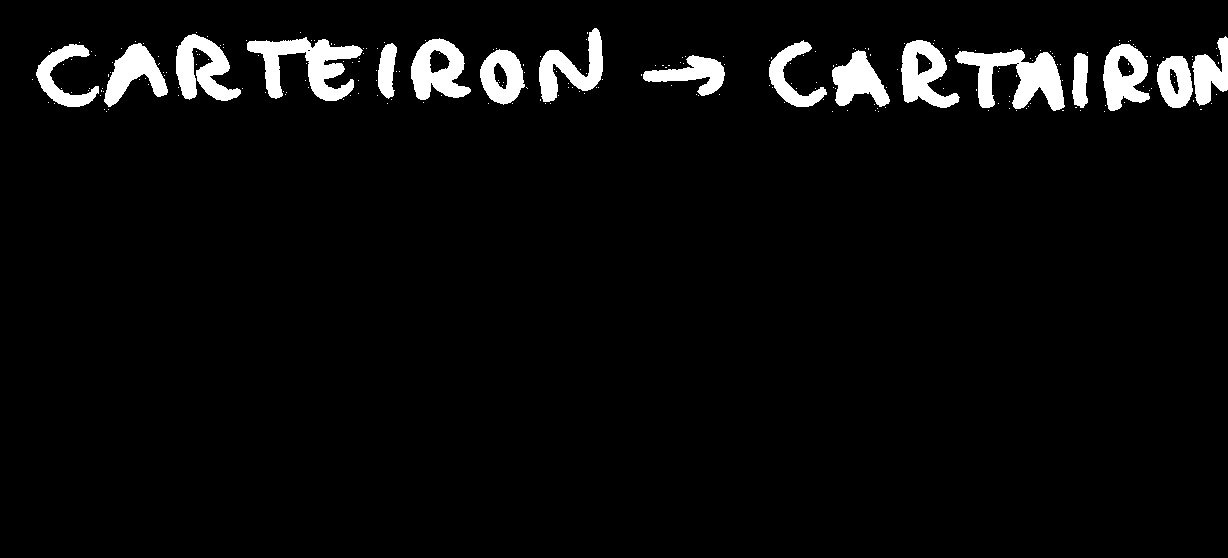 CARTEIRON → CARTAIRON